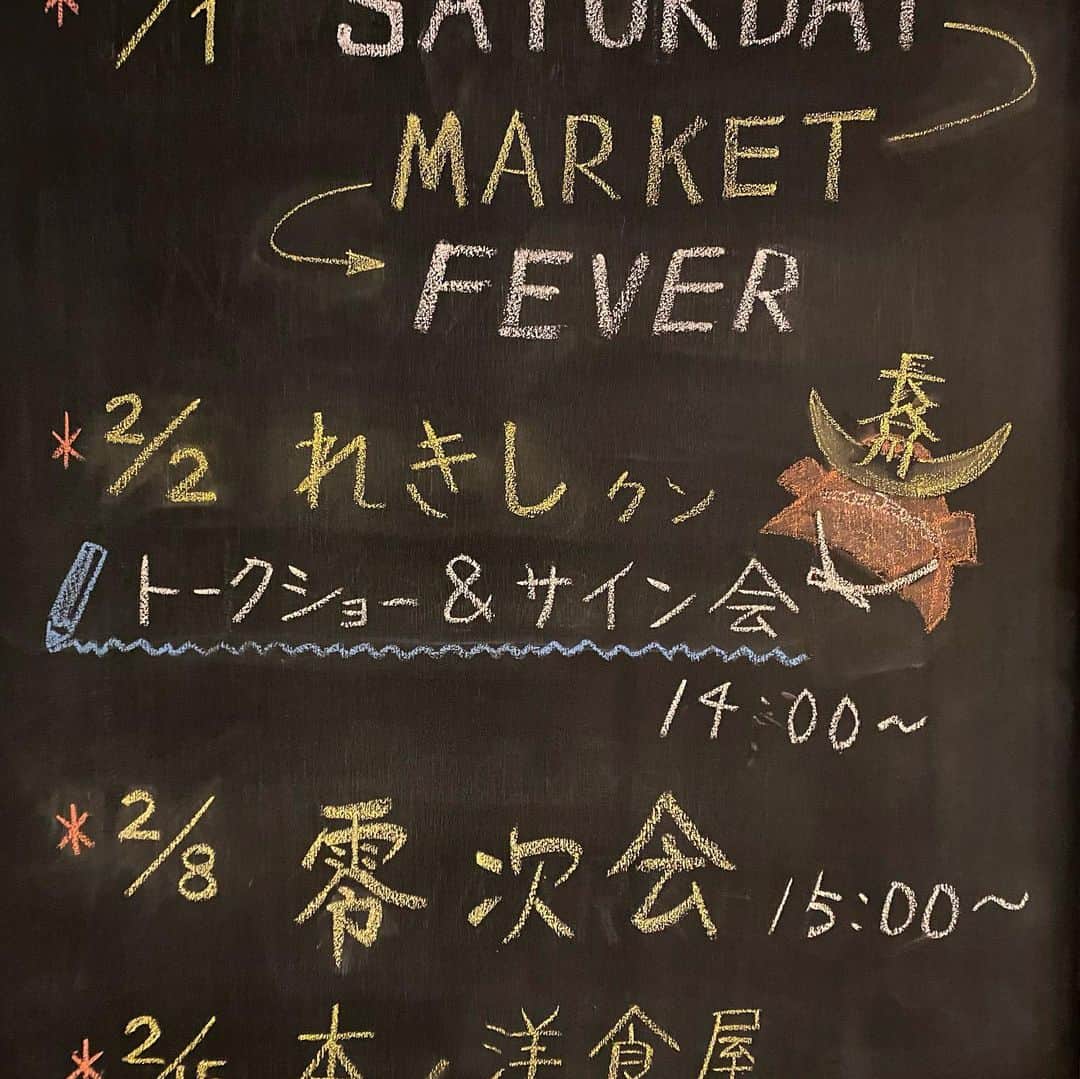 * 2/1 SATURDAY
MARKET
FEVER
* 2/2 れきしクン
トークショー & サイン会
14:00~
* 2/8 零次会 15:00~
* 2/15 本ノ洋食屋